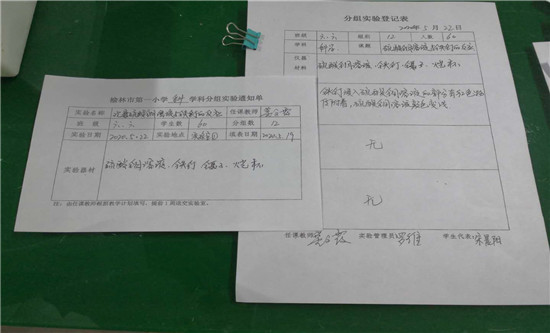 榆林市第一小学 科 学科分组实验通知单
实验名称 硫酸铜溶液与铁钉的反应 任课教师
班级 六.六 学生数 60 分组数 12
实验日期 2020.5.22 实验地点 填表日期 2020.5.19
实验器材 硫酸铜溶液、铁钉、镊子、烧杯
注:由任课教师根据教学计划填写,提前1周送交实验室。
分组实验登记表
2020年5月22日
班级 六.六 组数 12 人数 60
学科 科学 课题 硫酸铜溶液与铁钉的反应
仪器材料 硫酸铜溶液、铁钉、镊子、烧杯
铁钉浸入硫酸铜溶液的部分有红色物
质附着,硫酸铜溶液颜色变浅
无
无
任课教师 实验管理员: 学生代表: